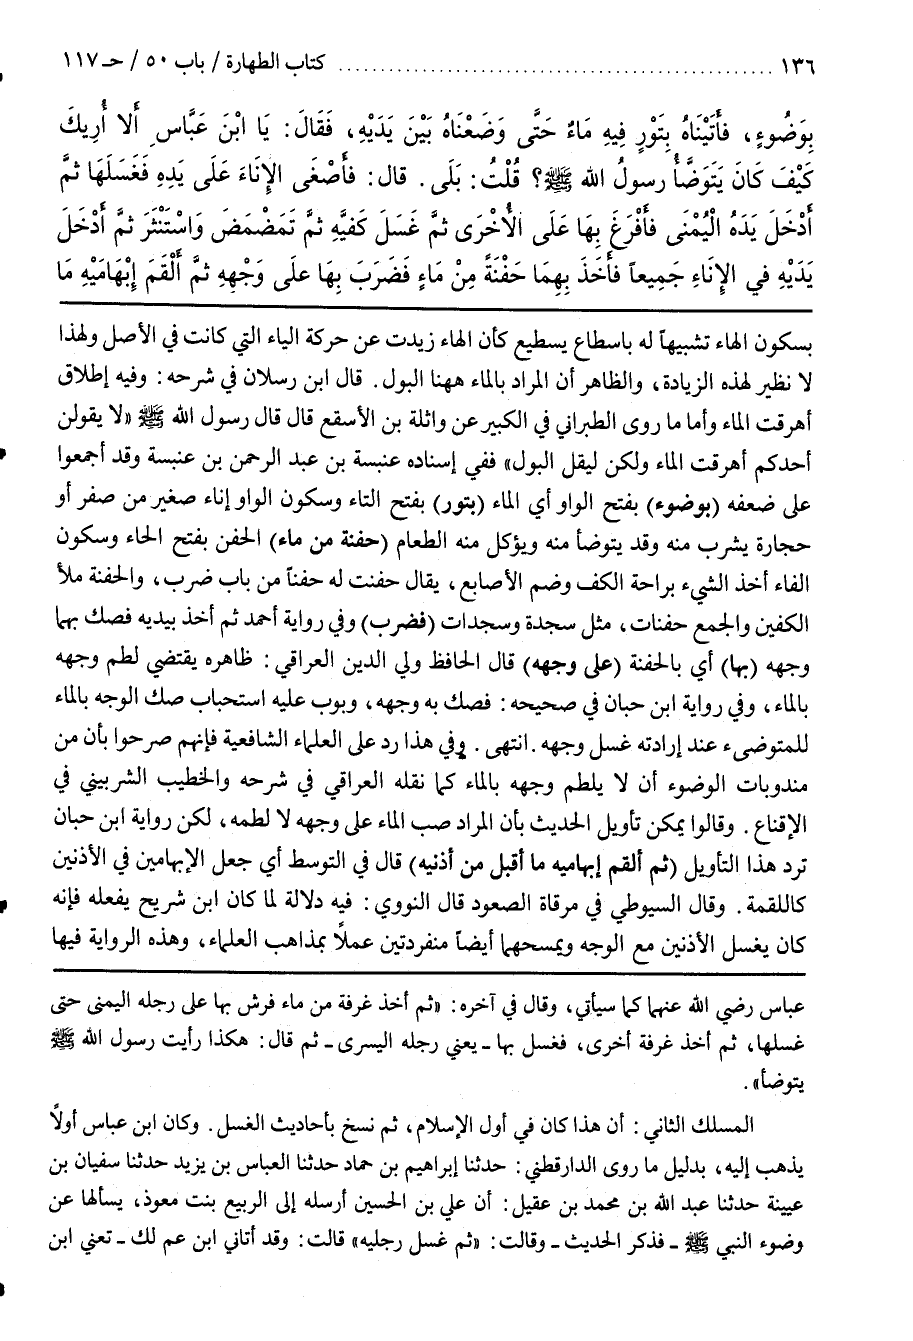 ١٣٦ .................................................. كتاب الطهارة / باب ٥٠ / حـ ١١٧
بِوَضُوءٍ، فَأَتَيْنَاهُ بِتَوْرٍ فِيهِ مَاءٌ حَتَّى وَضَعْنَاهُ بَيْنَ يَدَيْهِ، فَقَالَ: يَا ابْنَ عَبَّاسٍ أَلَا أُرِيكَ
كَيْفَ كَانَ يَتَوَضَّأُ رسولُ الله ﷺ؟ قُلْتُ: بَلَى. قال: فَأَصْغَى الإِنَاءَ عَلَى يَدِهِ فَغَسَلَهَا ثمَّ
أَدْخَلَ يَدَهُ الْيُمْنَى فأَفْرَغَ بِهَا عَلَى الْأُخْرَى ثمَّ غَسَلَ كَفَّيْهِ ثمَّ تَمَضْمَضَ وَاسْتَنْثَرَ ثمَّ أَدْخَلَ
يَدَيْهِ في الإِنَاءِ جَمِيعاً فأَخَذَ بِهِمَا حَفْنَةً مِنْ مَاءٍ فَضَرَبَ بِهَا عَلَى وَجْهِهِ ثمَّ أَلْقَمَ إِبْهَامَيْهِ مَا
بسكون الهاء تشبيهاً له باسطاع يسطيع كأن الهاء زيدت عن حركة الياء التي كانت في الأصل ولهذا
لا نظير لهذه الزيادة، والظاهر أن المراد بالماء ههنا البول. قال ابن رسلان في شرحه: وفيه إطلاق
أهرقت الماء وأما ما روى الطبراني في الكبير عن واثلة بن الأسقع قال قال رسول الله ﷺ «لا يقولن
أحدكم أهرقت الماء ولكن ليقل البول» ففي إسناده عنبسة بن عبد الرحمن بن عنبسة وقد أجمعوا
على ضعفه (بوضوء) بفتح الواو أي الماء (بتور) بفتح التاء وسكون الواو إناء صغير من صفر أو
حجارة يشرب منه وقد يتوضأ منه ويؤكل منه الطعام (حفنة من ماء) الحفن بفتح الحاء وسكون
الفاء أخذ الشيء براحة الكف وضم الأصابع، يقال حفنت له حفناً من باب ضرب، والحفنة ملأ
الكفين والجمع حفنات، مثل سجدة وسجدات (فضرب) وفي رواية أحمد ثم أخذ بيديه فصك بهما
وجهه (بها) أي بالحفنة (على وجهه) قال الحافظ ولي الدين العراقي: ظاهره يقتضي لطم وجهه
بالماء، وفي رواية ابن حبان في صحيحه: فصك به وجهه، وبوب عليه استحباب صك الوجه بالماء
للمتوضىء عند إرادته غسل وجهه. انتهى. وفي هذا رد على العلماء الشافعية فإنهم صرحوا بأن من
مندوبات الوضوء أن لا يلطم وجهه بالماء كما نقله العراقي في شرحه والخطيب الشربيني في
الإقناع. وقالوا يمكن تأويل الحديث بأن المراد صب الماء على وجهه لا لطمه، لكن رواية ابن حبان
ترد هذا التأويل (ثم ألقم إبهاميه ما أقبل من أذنيه) قال في التوسط أي جعل الإبهامين في الأذنين
كاللقمة. وقال السيوطي في مرقاة الصعود قال النووي: فيه دلالة لما كان ابن شريح يفعله فإنه
كان يغسل الأذنين مع الوجه ويمسحهما أيضاً منفردتين عملاً بمذاهب العلماء، وهذه الرواية فيها
عباس رضي الله عنهما كما سيأتي، وقال في آخره: «ثم أخذ غرفة من ماء فرش بها على رجله اليمنى حتى
غسلها، ثم أخذ غرفة أخرى، فغسل بها ـ يعني رجله اليسرى ـ ثم قال: هكذا رأيت رسول الله ﷺ
يتوضأ».
المسلك الثاني: أن هذا كان في أول الإسلام، ثم نسخ بأحاديث الغسل. وكان ابن عباس أولاً
يذهب إليه، بدليل ما روى الدارقطني: حدثنا إبراهيم بن حماد حدثنا العباس بن يزيد حدثنا سفيان بن
عيينة حدثنا عبد الله بن محمد بن عقيل: أن علي بن الحسين أرسله إلى الربيع بنت معوذ، يسألها عن
وضوء النبي ﷺ ـ فذكر الحديث ـ وقالت: «ثم غسل رجليه» قالت: وقد أتاني ابن عم لك ـ تعني ابن